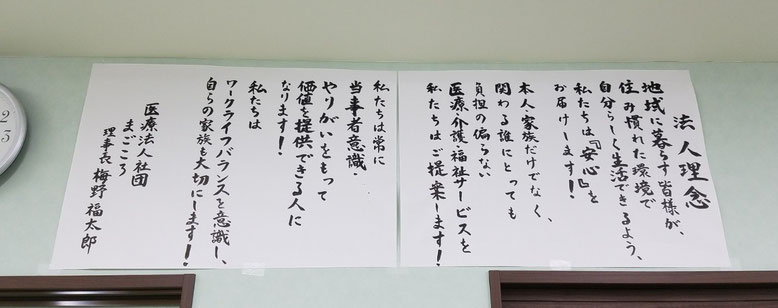 法人理念
地域に暮らす皆様が、
住み慣れた環境で
自分らしく生活できるよう、
私たちは『安心』を
お届けします！
本人・家族だけでなく、
関わる誰にとっても
負担の偏らない
医療・介護・福祉サービスを
私たちはご提案します！
私たちは常に
当事者意識
やりがいをもって
価値を提供できる人に
なります！
私たちは
ワークライフバランスを意識し、
自らの家族も大切にします！
医療法人社団
まごころ
理事長 梅野福太郎
2
3